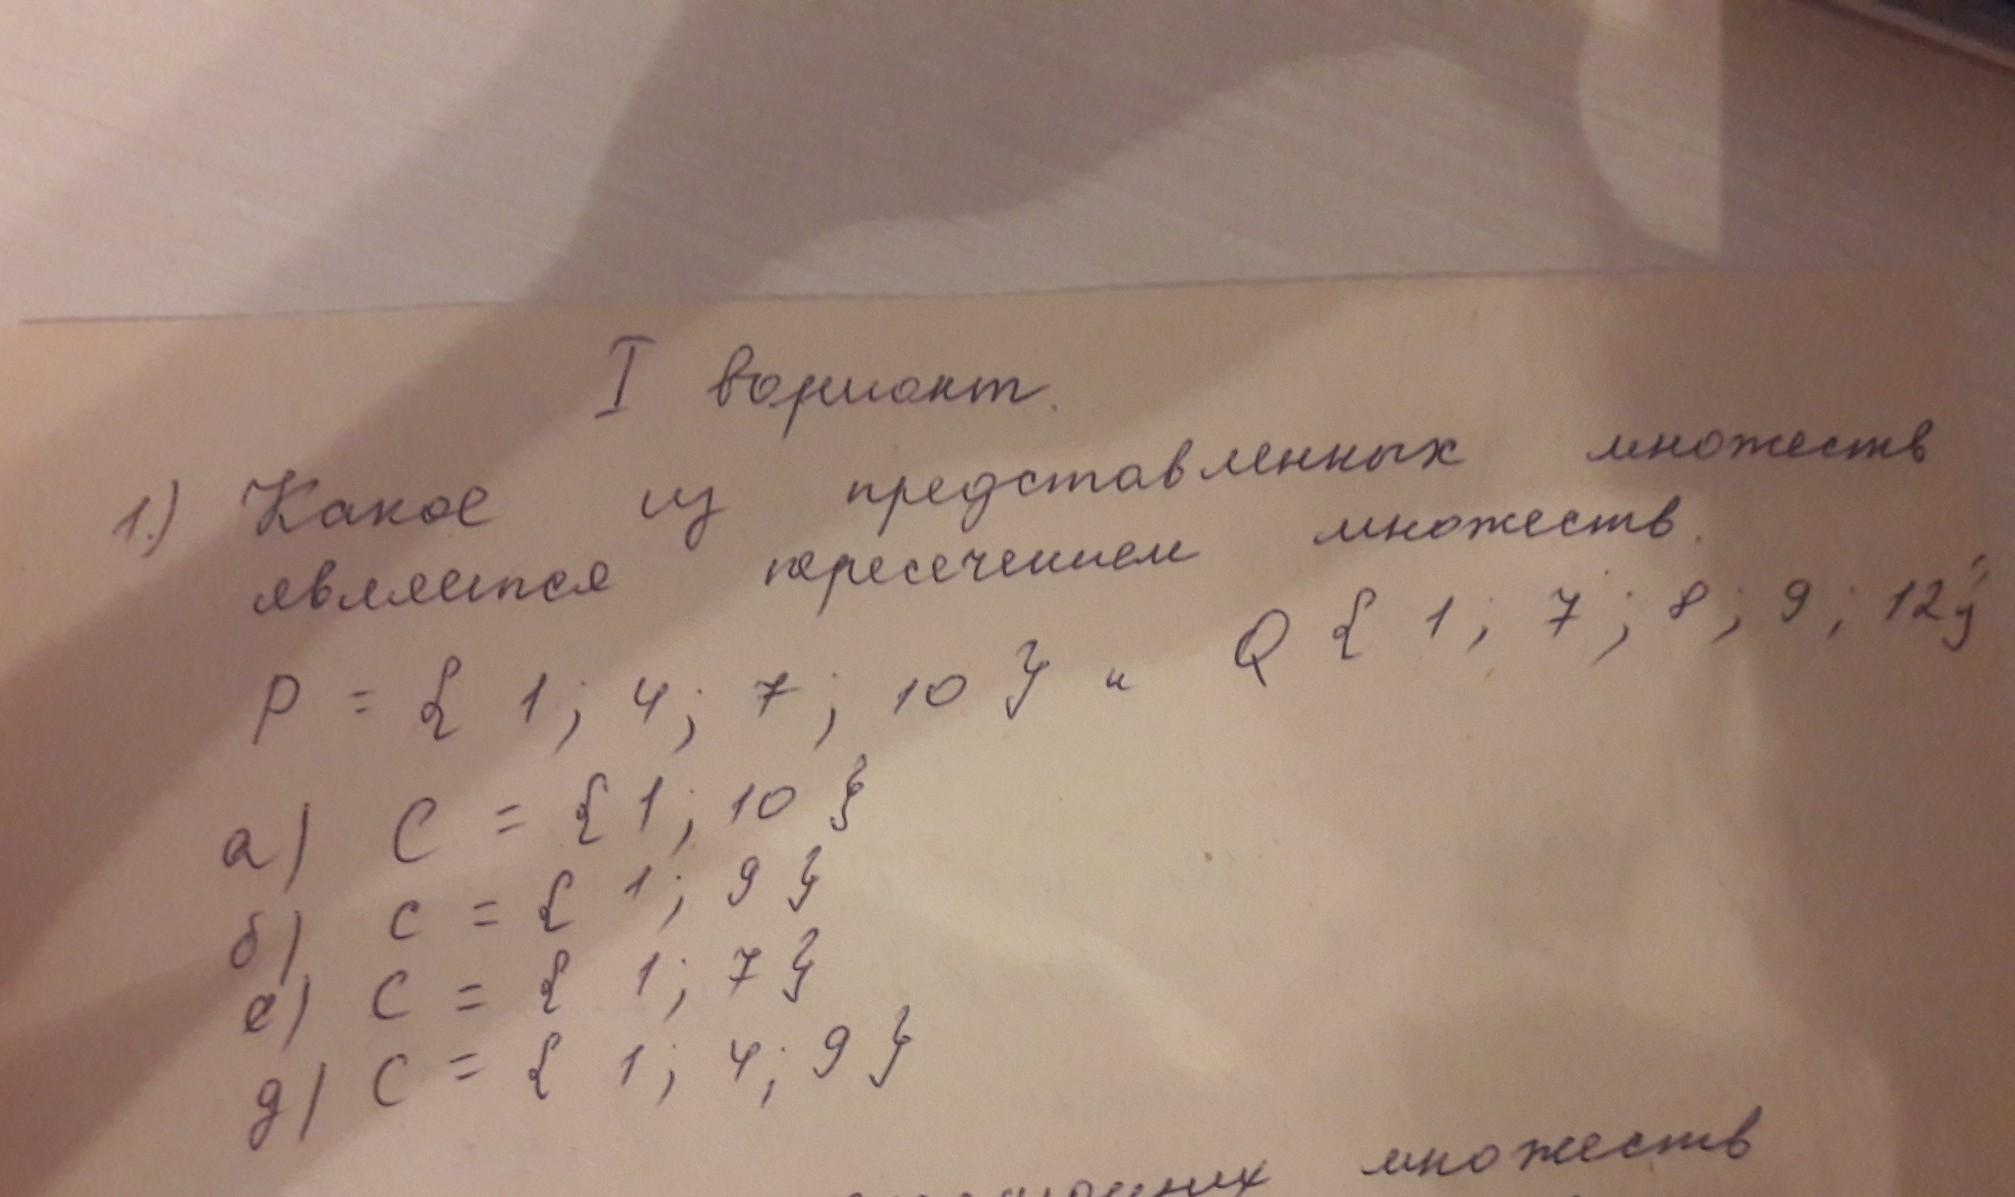 I вариант.
1.) Какое из представленных множеств
является пересечением множеств.
P = { 1 ; 4 ; 7 ; 10 } и Q { 1 ; 7 ; 8 ; 9 ; 12 }
а) C = { 1 ; 10 }
б) C = { 1 ; 9 }
с) C = { 1 ; 7 }
д) C = { 1 ; 4 ; 9 }
множеств